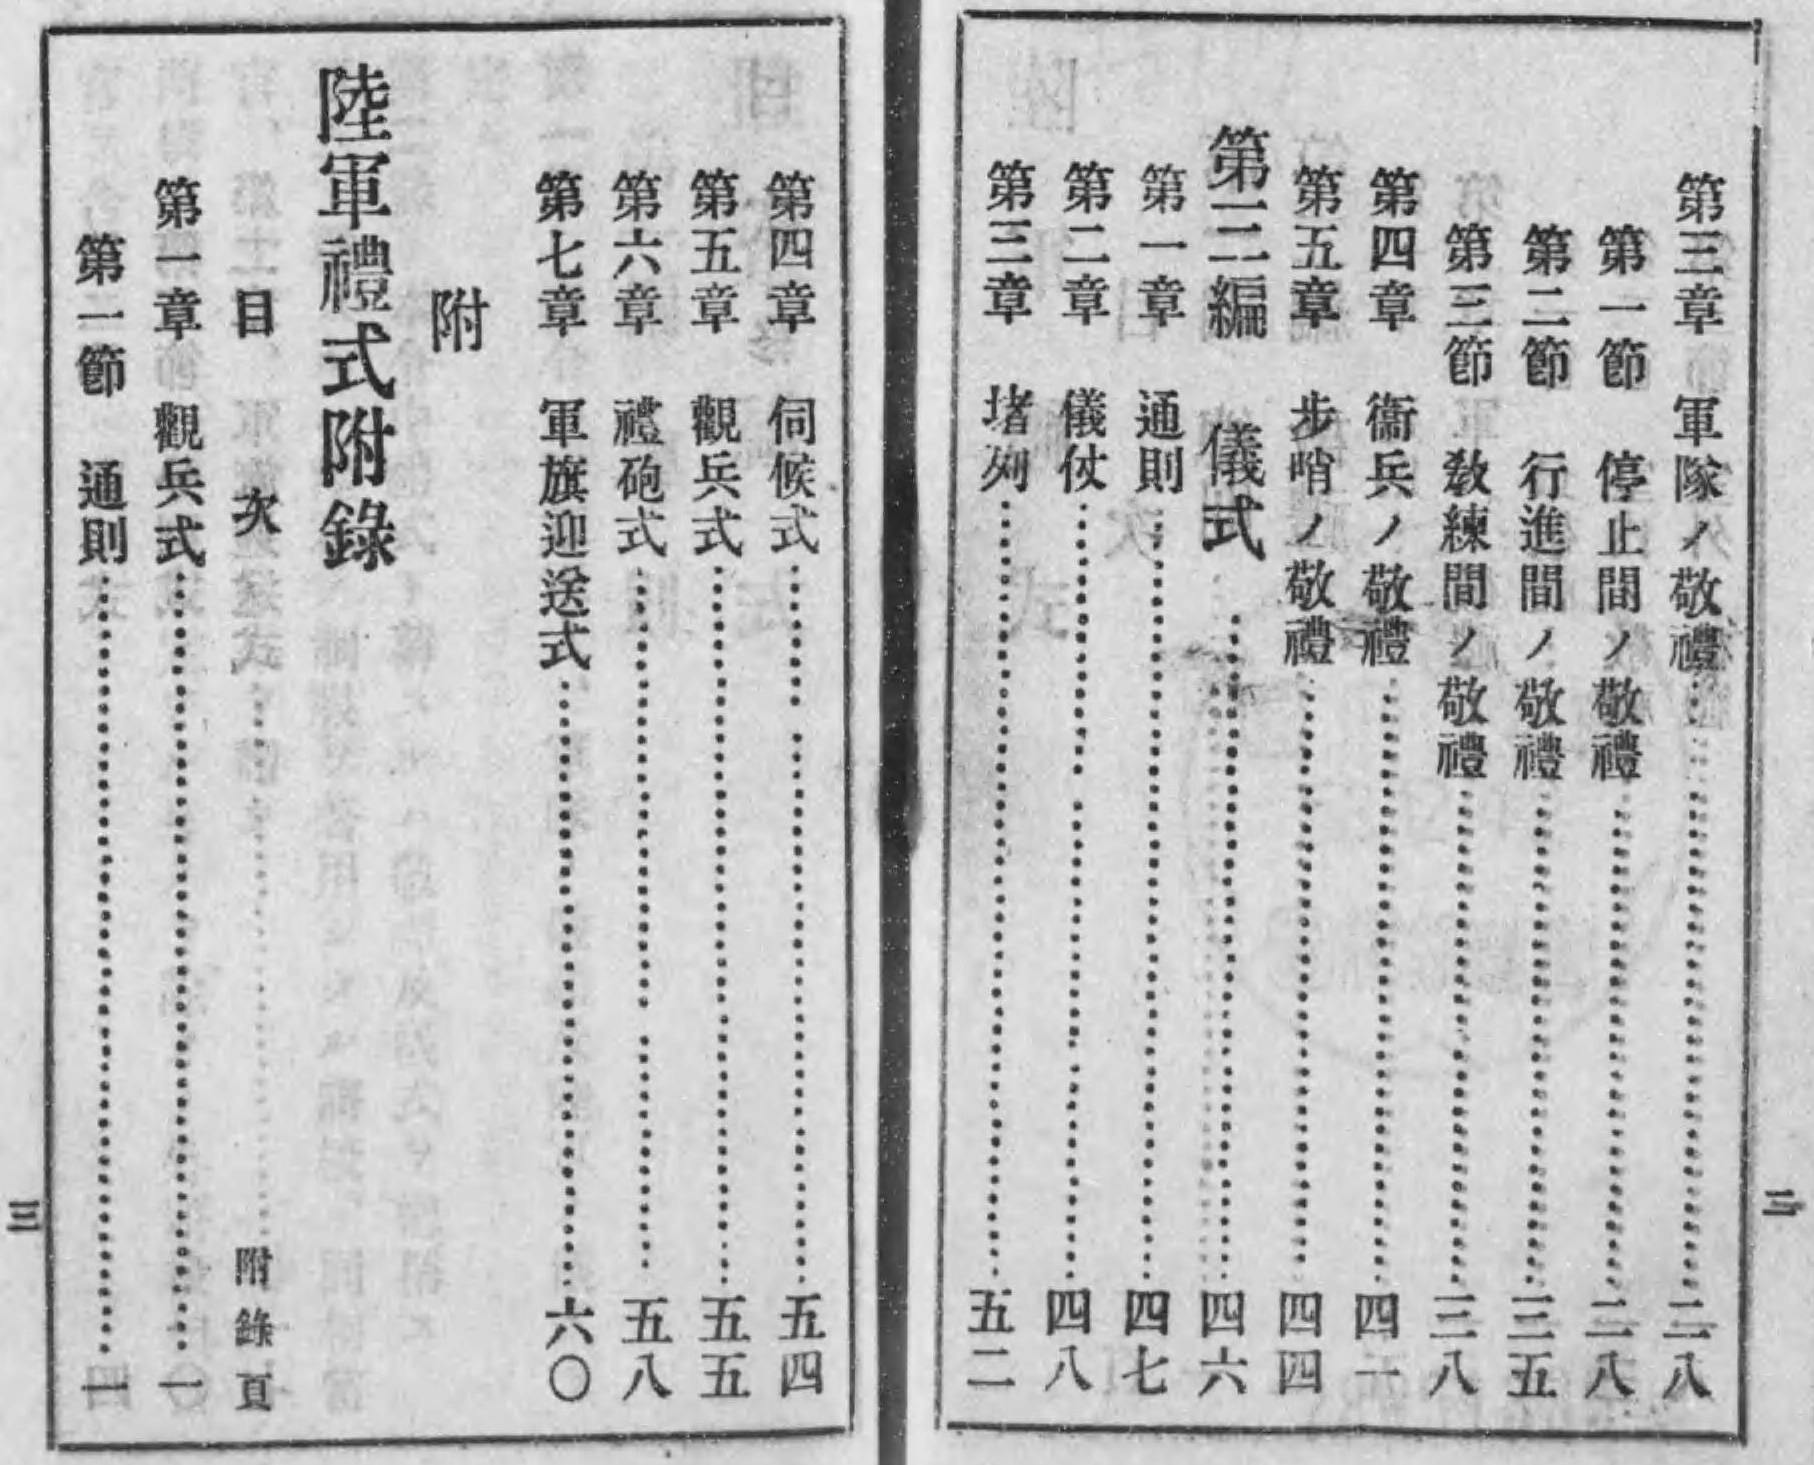 第三章 軍隊ノ敬禮……二八
第一節 停止間ノ敬禮……二八
第二節 行進間ノ敬禮……三五
第三節 敎練間ノ敬禮……三八
第四章 衞兵ノ敬禮……四一
第五章 步哨ノ敬禮……四四
第二編 儀式……四六
第一章 通則……四七
第二章 儀仗……四八
第三章 堵列……五二
二
第四章 伺候式……五四
第五章 觀兵式……五五
第六章 禮砲式……五八
第七章 軍旗迎送式……六〇
附
陸軍禮式附錄
目次 附錄頁
第一章 觀兵式……一
第一節 通則……一
三